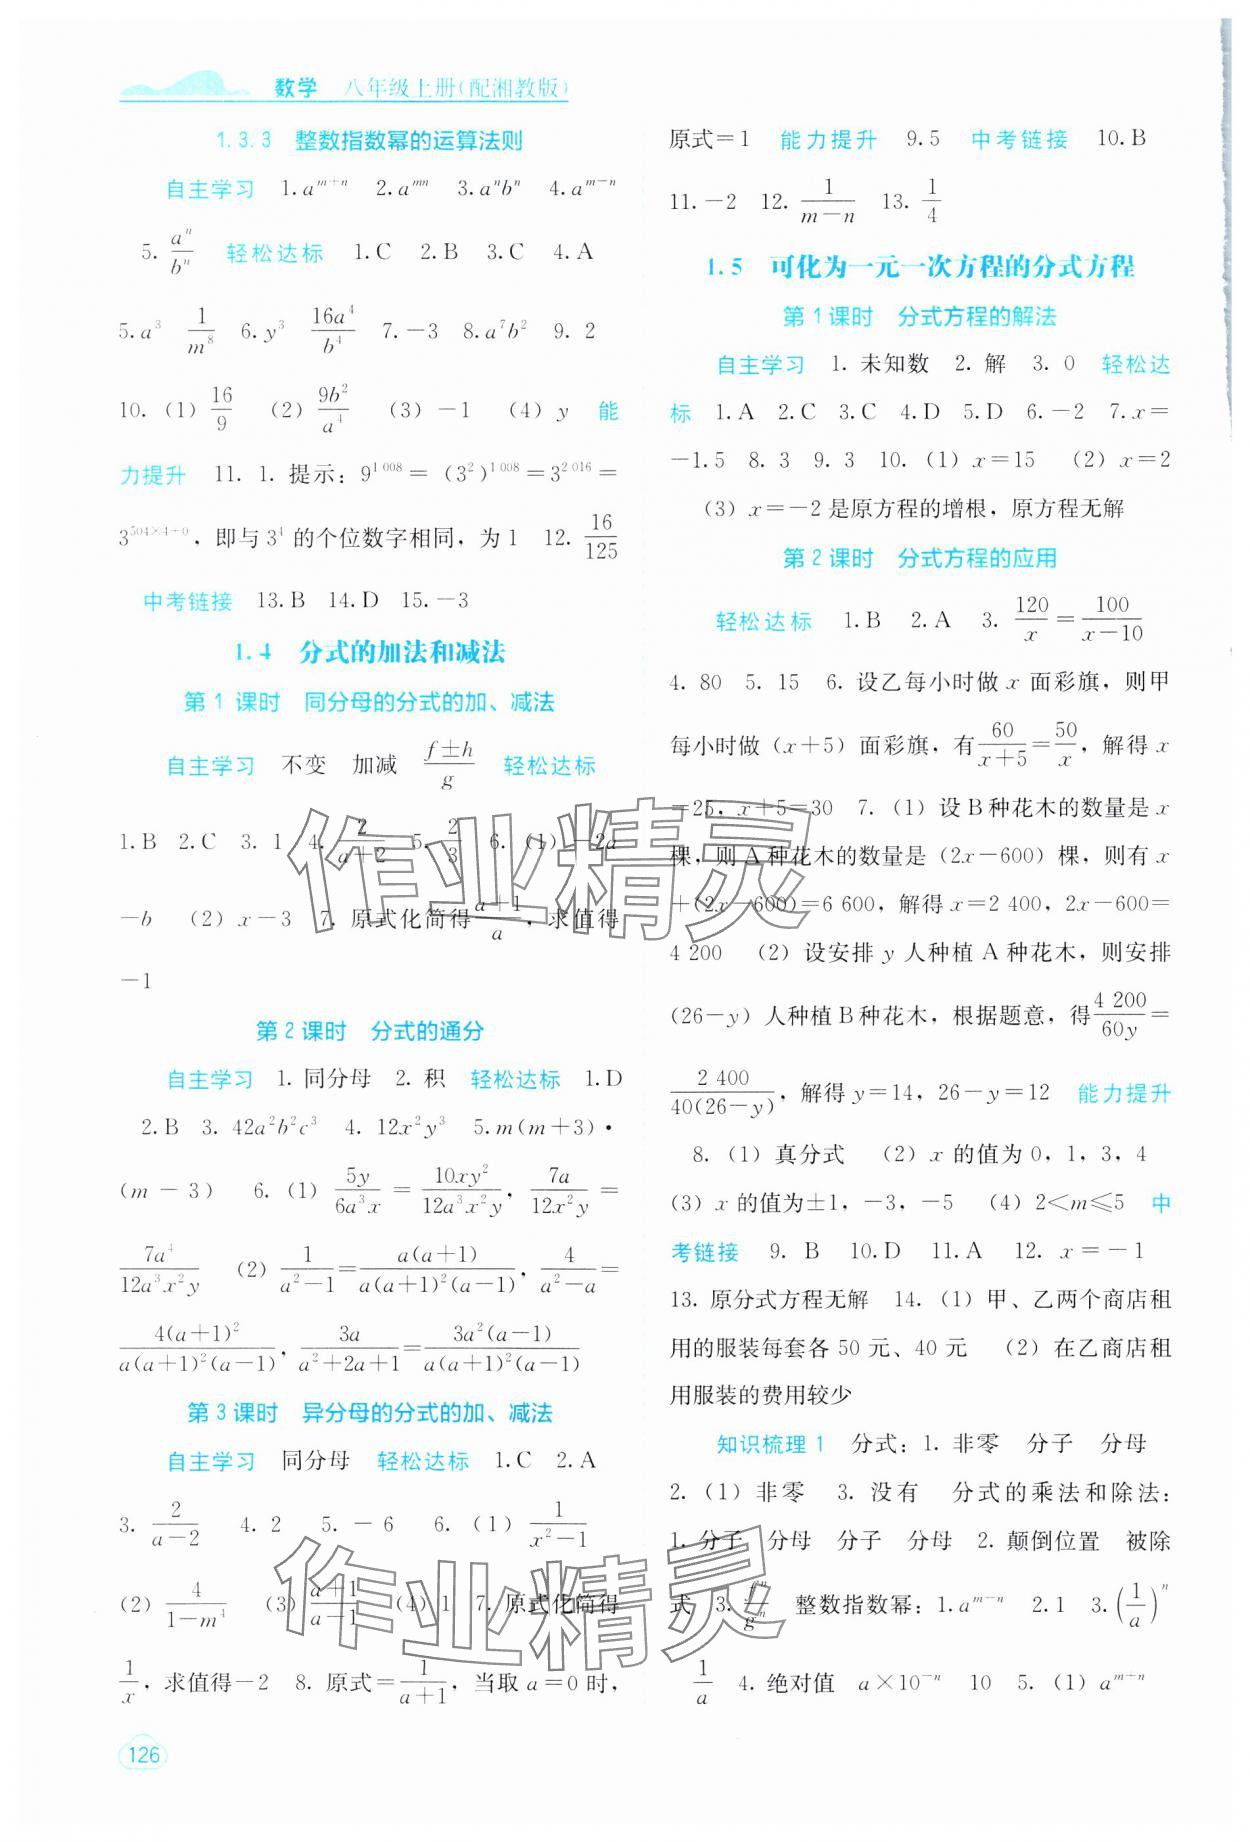 数学 八年级上册(配湘教版)
1.3.3 整数指数幂的运算法则
自主学习 1.a^{m+n} 2.a^{mn} 3.a^n b^n 4.a^{m-n}
5. a^n/b^n 轻松达标 1.C 2.B 3.C 4.A
5.a^3 1/m^8 6.y^3 16a^4/b^4 7.-3 8.a^7b^2 9.2
10.(1) 16/9 (2) 9b^2/a^4 (3)-1 (4) y 能
力提升 11. 1. 提示:9^{1 008}=(3^2)^{1 008}=3^{2 016}=
3^{504×4+0},即与3^4的个位数字相同,为1 12. 16/125
中考链接 13.B 14.D 15.-3
1.4 分式的加法和减法
第1课时 同分母的分式的加、减法
自主学习 不变 加减 (f±h)/g 轻松达标
1.B 2.C 3.1 4. 2/(a-2) 5. 2/3 6.(1)-2a
-b (2) x-3 7. 原式化简得(a+1)/a,求值得
-1
第2课时 分式的通分
自主学习 1. 同分母 2. 积 轻松达标 1.D
2.B 3. 42a^2b^2c^3 4. 12x^2y^3 5.m(m+3)·
(m-3) 6.(1) 5y/(6a^3x) = 10xy^2/(12a^3x^2y), 7a/(12x^2y) =
7a^4/(12a^3x^2y) (2) 1/(a^2-1) = a(a+1)/(a(a+1)^2(a-1)), 4/(a^2-a) =
4(a+1)^2/(a(a+1)^2(a-1)), 3a/(a^2+2a+1) = 3a^2(a-1)/(a(a+1)^2(a-1))
第3课时 异分母的分式的加、减法
自主学习 同分母 轻松达标 1.C 2.A
3. 2/(a-2) 4. 2 5. -6 6.(1) 1/(x^2-1)
(2) 4/(1-m^4) (3) (a+1)/(a-1) (4) 1 7. 原式化简得
1/x,求值得-2 8. 原式=1/(a+1),当取a=0时,
126
原式=1 能力提升 9.5 中考链接 10.B
11.-2 12. 1/(m-n) 13. 1/4
1.5 可化为一元一次方程的分式方程
第1课时 分式方程的解法
自主学习 1. 未知数 2. 解 3. 0 轻松达
标 1.A 2.C 3.C 4.D 5.D 6.-2 7.x=
-1.5 8.3 9.3 10.(1) x=15 (2) x=2
(3) x=-2是原方程的增根,原方程无解
第2课时 分式方程的应用
轻松达标 1.B 2.A 3. 120/x = 100/(x-10)
4. 80 5. 15 6. 设乙每小时做x面彩旗,则甲
每小时做(x+5)面彩旗,有60/(x+5)=50/x,解得x
=25,x+5=30 7.(1) 设B种花木的数量是x
棵,则A种花木的数量是(2x-600)棵,则有x
+(2x-600)=6 600,解得x=2 400,2x-600=
4 200 (2) 设安排y人种植A种花木,则安排
(26-y)人种植B种花木,根据题意,得4 200/60y=
2 400/(40(26-y)),解得y=14,26-y=12 能力提升
8.(1) 真分式 (2) x的值为0,1,3,4
(3) x的值为±1,-3,-5 (4) 2<m≤5 中
考链接 9. B 10.D 11.A 12. x=-1
13. 原分式方程无解 14.(1) 甲、乙两个商店租
用的服装每套各50元、40元 (2) 在乙商店租
用服装的费用较少
知识梳理1 分式:1. 非零 分子 分母
2.(1) 非零 3. 没有 分式的乘法和除法:
1. 分子 分母 分子 分母 2. 颠倒位置 被除
式 3. f^n/g^n 整数指数幂:1.a^{m-n} 2.1 3.(1/a)^n
1/a 4. 绝对值 a×10^{-n} 10 5.(1) a^{m+n}
作业精灵
作业精灵